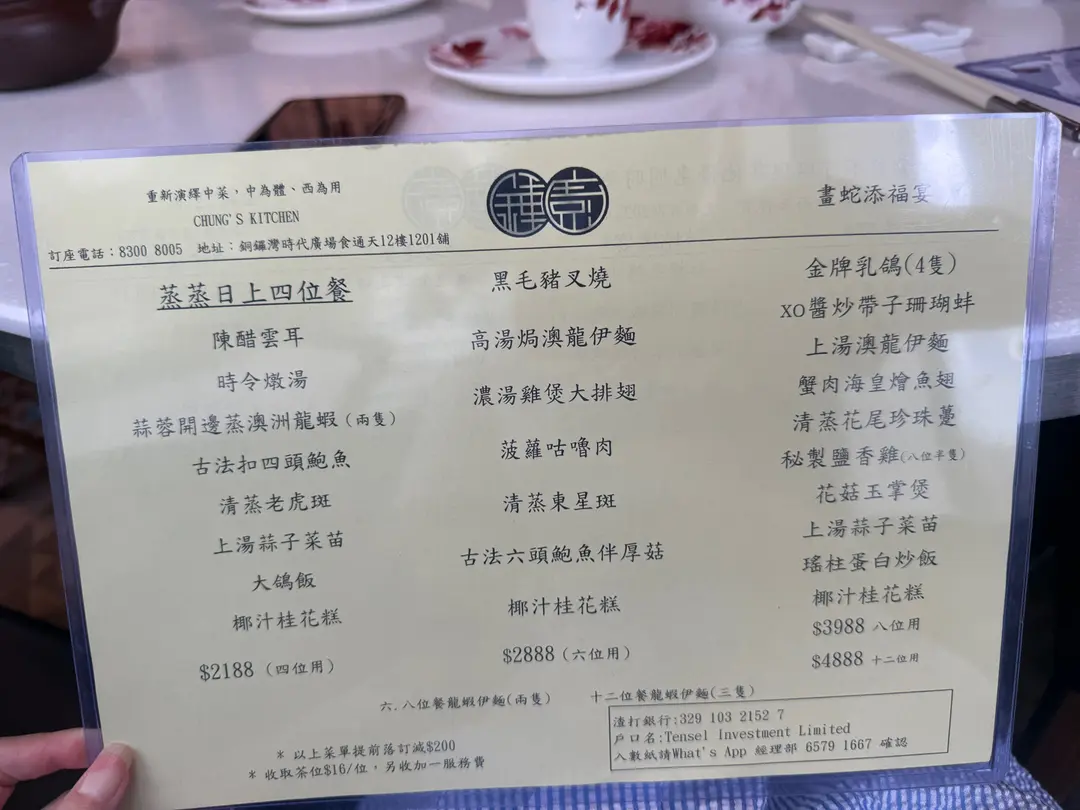 重新演繹中菜，中為體、西為用
CHUNG'S KITCHEN
訂座電話：8300 8005 地址：銅鑼灣時代廣場食通天12樓1201舖
畫蛇添福宴
蒸蒸日上四位餐
陳醋雲耳
時令燉湯
蒜蓉開邊蒸澳洲龍蝦(兩隻)
古法扣四頭鮑魚
清蒸老虎斑
上湯蒜子菜苗
大鴿飯
椰汁桂花糕
$2188 (四位用)
黑毛豬叉燒
高湯焗澳龍伊麵
濃湯雞煲大排翅
菠蘿咕嚕肉
清蒸東星斑
古法六頭鮑魚伴厚菇
椰汁桂花糕
$2888 (六位用)
金牌乳鴿(4隻)
XO醬炒帶子珊瑚蚌
上湯澳龍伊麵
蟹肉海皇燴魚翅
清蒸花尾珍珠躉
秘製鹽香雞(八位半隻)
花菇玉掌煲
上湯蒜子菜苗
瑤柱蛋白炒飯
椰汁桂花糕
$3988 八位用
$4888 十二位用
六.八位餐龍蝦伊麵(兩隻) 十二位餐龍蝦伊麵(三隻)
* 以上菜單提前落訂減$200
* 收取茶位$16/位，另收加一服務費
渣打銀行:329 103 2152 7
戶口名:Tensel Investment Limited
入數紙請What's App 經理部 6579 1667 確認